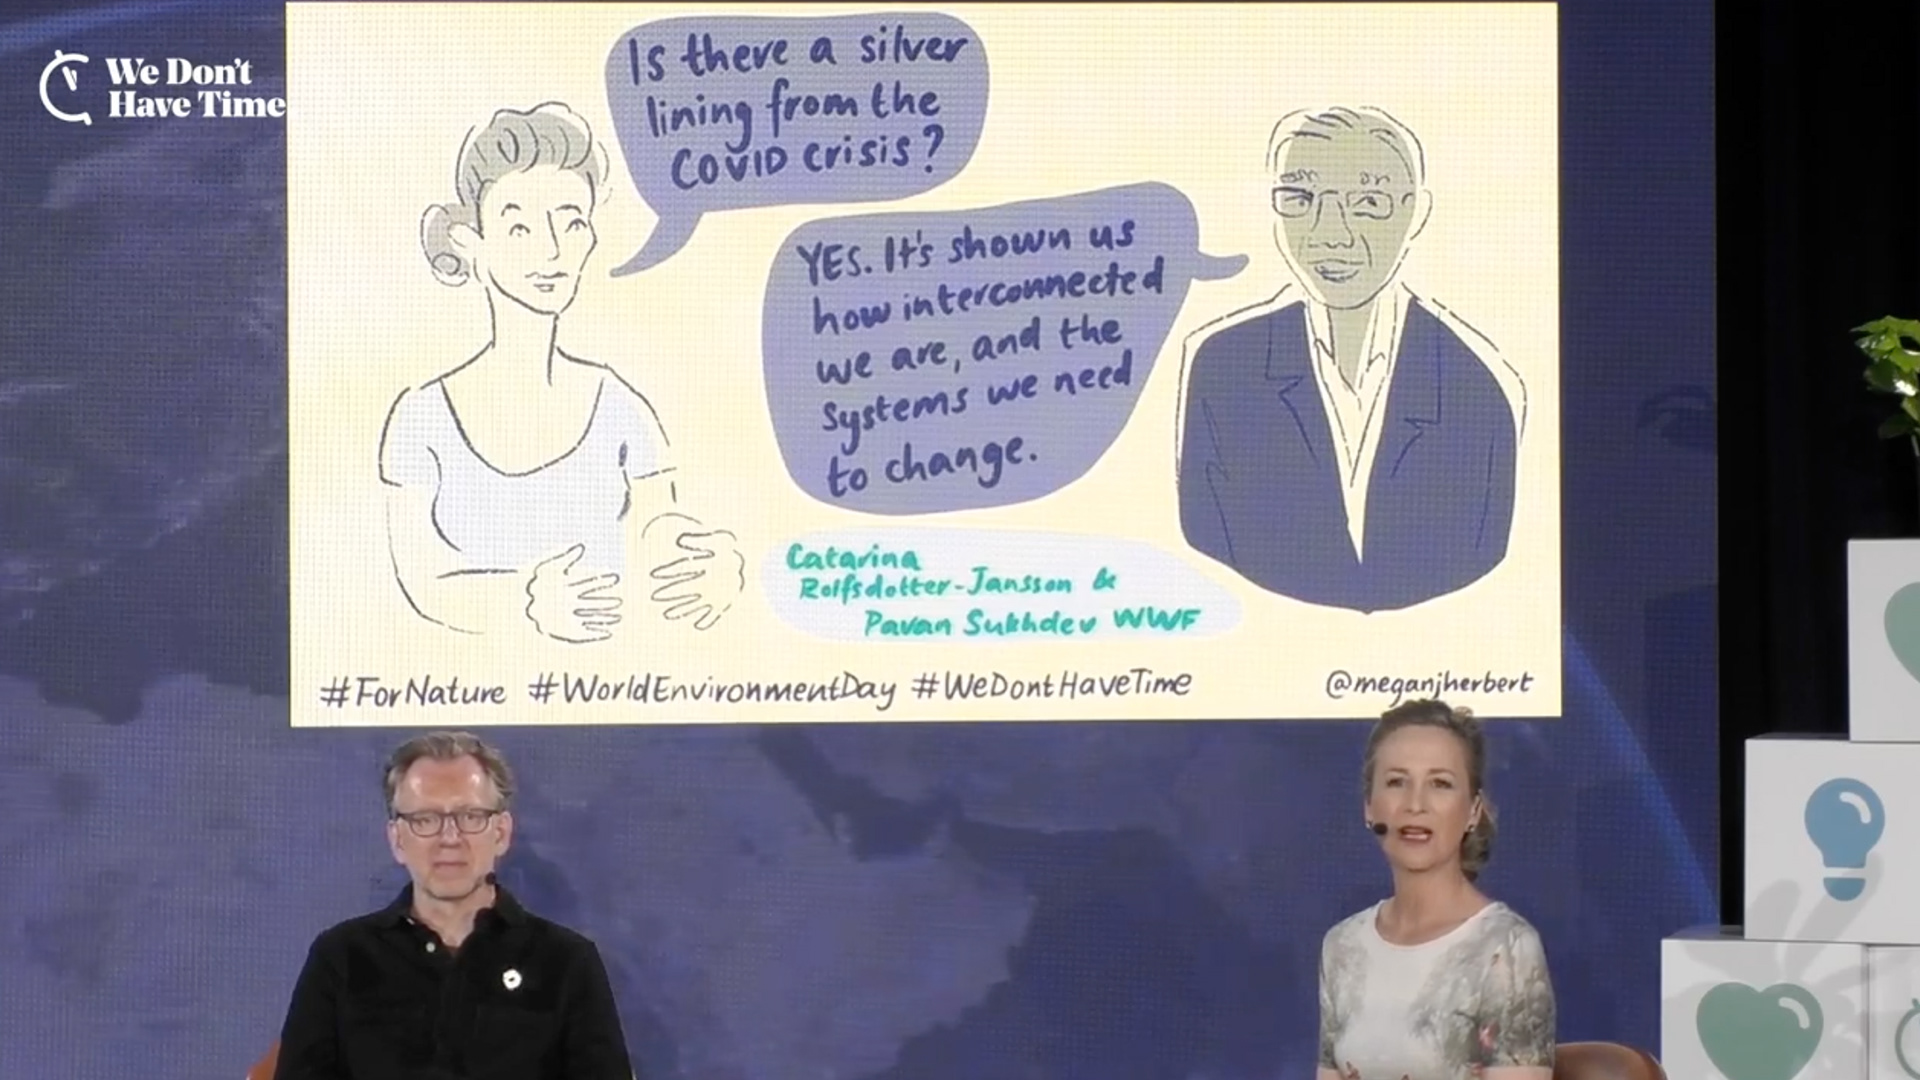 We Don't
Have Time
Is there a silver
lining from the
COVID crisis?
YES. It's shown us
how interconnected
we are, and the
systems we need
to change.
Catarina
Rolfsdotter-Jansson &
Pavan Sukhdev WWF
#ForNature #WorldEnvironmentDay #WeDontHaveTime
@meganjherbert